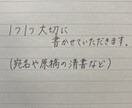 1つ1つ大切に
書かせていただきます。
(宛名や原稿の清書など)